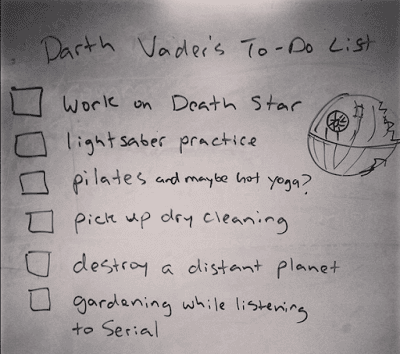 Darth Vader's To-Do List
work on Death Star
lightsaber practice
pilates and maybe hot yoga?
pick up dry cleaning
destroy a distant planet
gardening while listening
to Serial